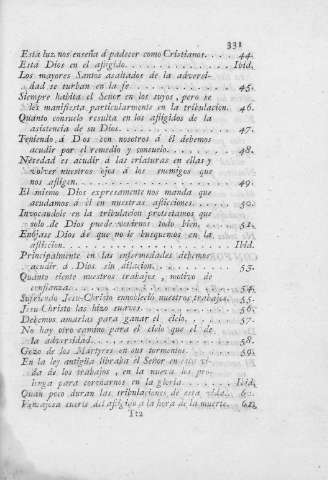 331
Esta luz nos enseña á padecer como Cristianos. . . . 44.
Está Dios en el afligido. . . . . . . . . . . . . . Ibid.
Los mayores Santos asaltados de la adversi-
dad se turban en la fe. . . . . . . . . . . . . . 45.
Siempre habita el Señor en los suyos, pero se
les manifiesta particularmente en la tribulacion. 46.
Quánto consuelo resulta en los afligidos de la
asistencia de su Dios. . . . . . . . . . . . . . . 47.
Teniendo á Dios con nosotros á él debemos
acudir por el remedio y consuelo. . . . . . . . . 48.
Necedad es acudir á las criaturas en ellas y
volver nuestros ojos á los enemigos que
nos afligen. . . . . . . . . . . . . . . . . . . . 49.
El mismo Dios expresamente nos manda que
acudamos á él en nuestras aflicciones. . . . . . . 50.
Invocandole en la tribulacion protestamos que
solo de Dios puede venirnos todo bien. . . . . . . 51.
Enójase Dios de que no le busquemos en la
afliccion. . . . . . . . . . . . . . . . . . . . . Ibid.
Principalmente en las enfermedades debemos
acudir á Dios sin dilacion. . . . . . . . . . . . 53.
Quánto siente nuestros trabajos, motivo de
confianza. . . . . . . . . . . . . . . . . . . . . 54.
Sufriendo Jesu-Christo ennobleció nuestros trabajos. 55.
Jesu-Christo las hizo suaves. . . . . . . . . . . . 56.
Debemos amarlas para ganar el cielo. . . . . . . . 57.
No hay otro camino para el cielo que el de
la adversidad. . . . . . . . . . . . . . . . . . . 58.
Gozo de los Mártyres en sus tormentos. . . . . . . 59.
En la ley antigüa libraba el Señor en esta vi-
da de los trabajos, en la nueva los pro-
longa para coronarnos en la gloria. . . . . . . . Ibid.
Quan poco duran las tribulaciones de esta vida. . .
Ventajosa suerte del afligido á la hora de la muerte. 62.
Tt2